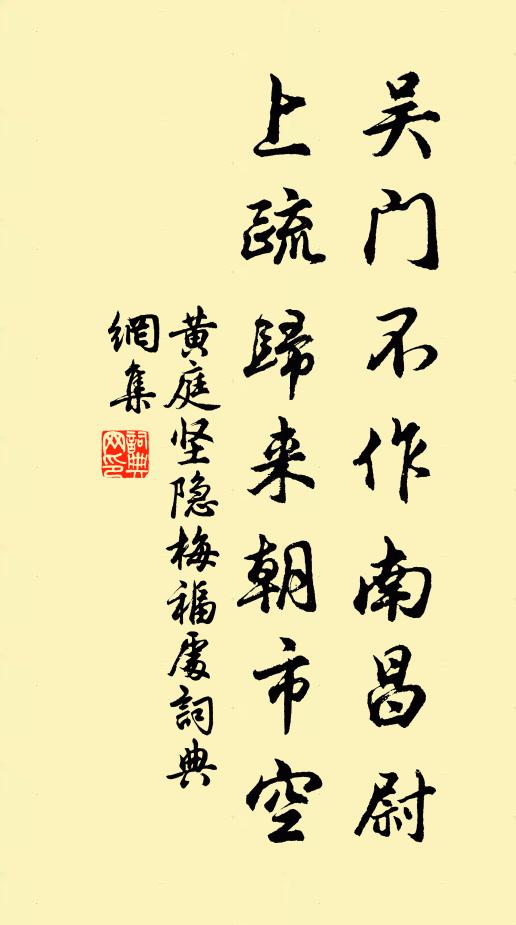 吴门不作南昌尉
上疏歸来朝市空
黄庭坚隐梅福處詞典
網集
詞典网印